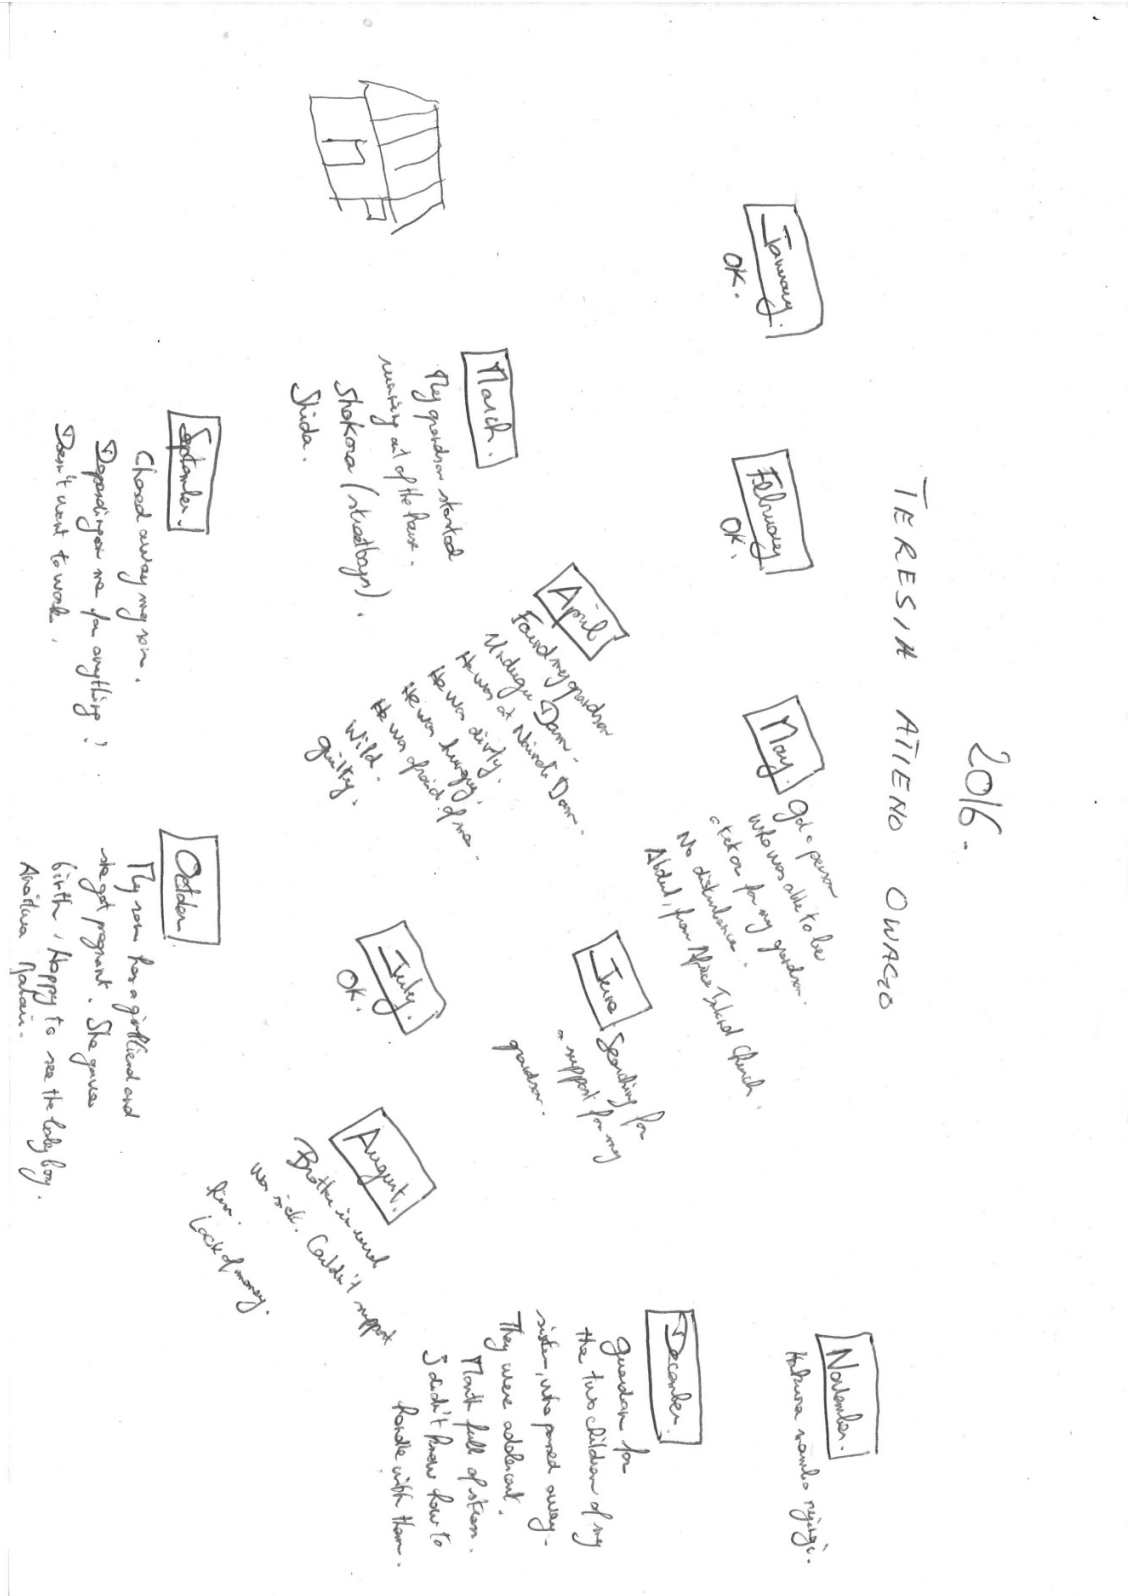 2016.
TERESIA ATIENO OWAGO
January.
OK.
February
OK.
March.
My grandson started
running out of the house.
Shokora (streetboys).
Shida.
April
Found my grandson
Undugu Dam.
He was at Nairobi Dam.
He was dirty.
He was hungry.
Wild.
He was afraid of me.
guilty.
May.
Got a person
who was able to be
for my grandson.
No disturbance.
Abdul, from Church.
June
Searching for
a support for my
grandson.
July.
OK.
August.
Brother in
was sick. Couldn't support
him.
Lack of money.
September.
Chased away my son.
Depending on me for anything!
Doesn't want to work.
October
My son has a girlfriend and
she got pregnant. She gave
birth. Happy to see the baby boy.
November.
Hakuna mambo
December.
guardian for
the two children of my
sister, who passed away.
They were adolescent.
Month full of stress.
I didn't know how to
handle with them.